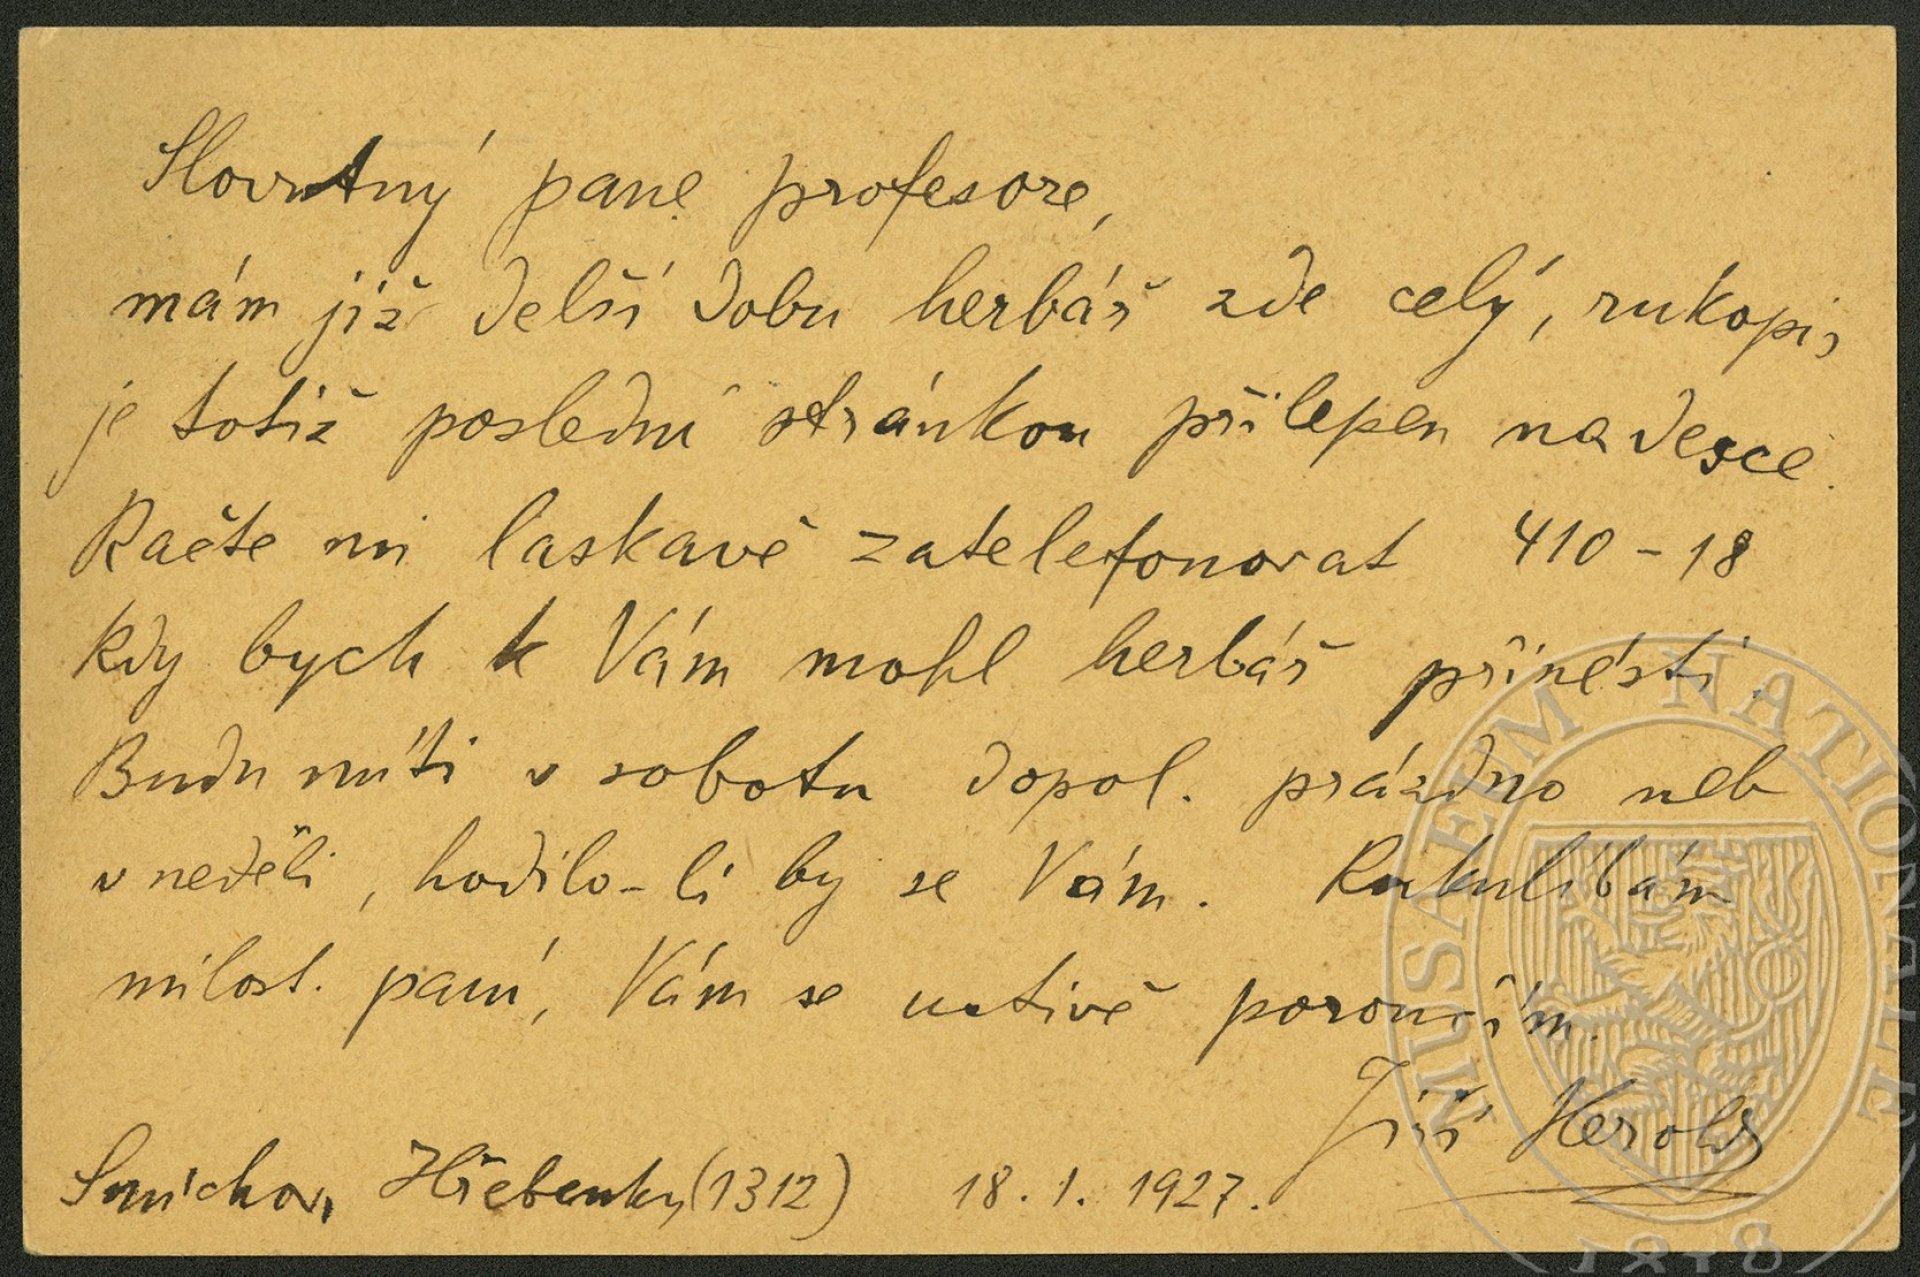 Slovutný pane profesore,
mám již delší dobu herbář zde celý, rukopis
je totiž poslední stránkou přilepen na desce.
Račte mi laskavě zatelefonovat 410-18
kdy bych k Vám mohl herbář přinésti.
Budu míti v sobotu dopol. prázdno neb
v neděli, hodilo-li by se Vám. Rukulíbám
milost. paní, Vám se uctivě poroučím.
Jiří Herold
Smíchov, Hřebenky (1312) 18.1.1927.
MUSAEUM NATIONALE
1818